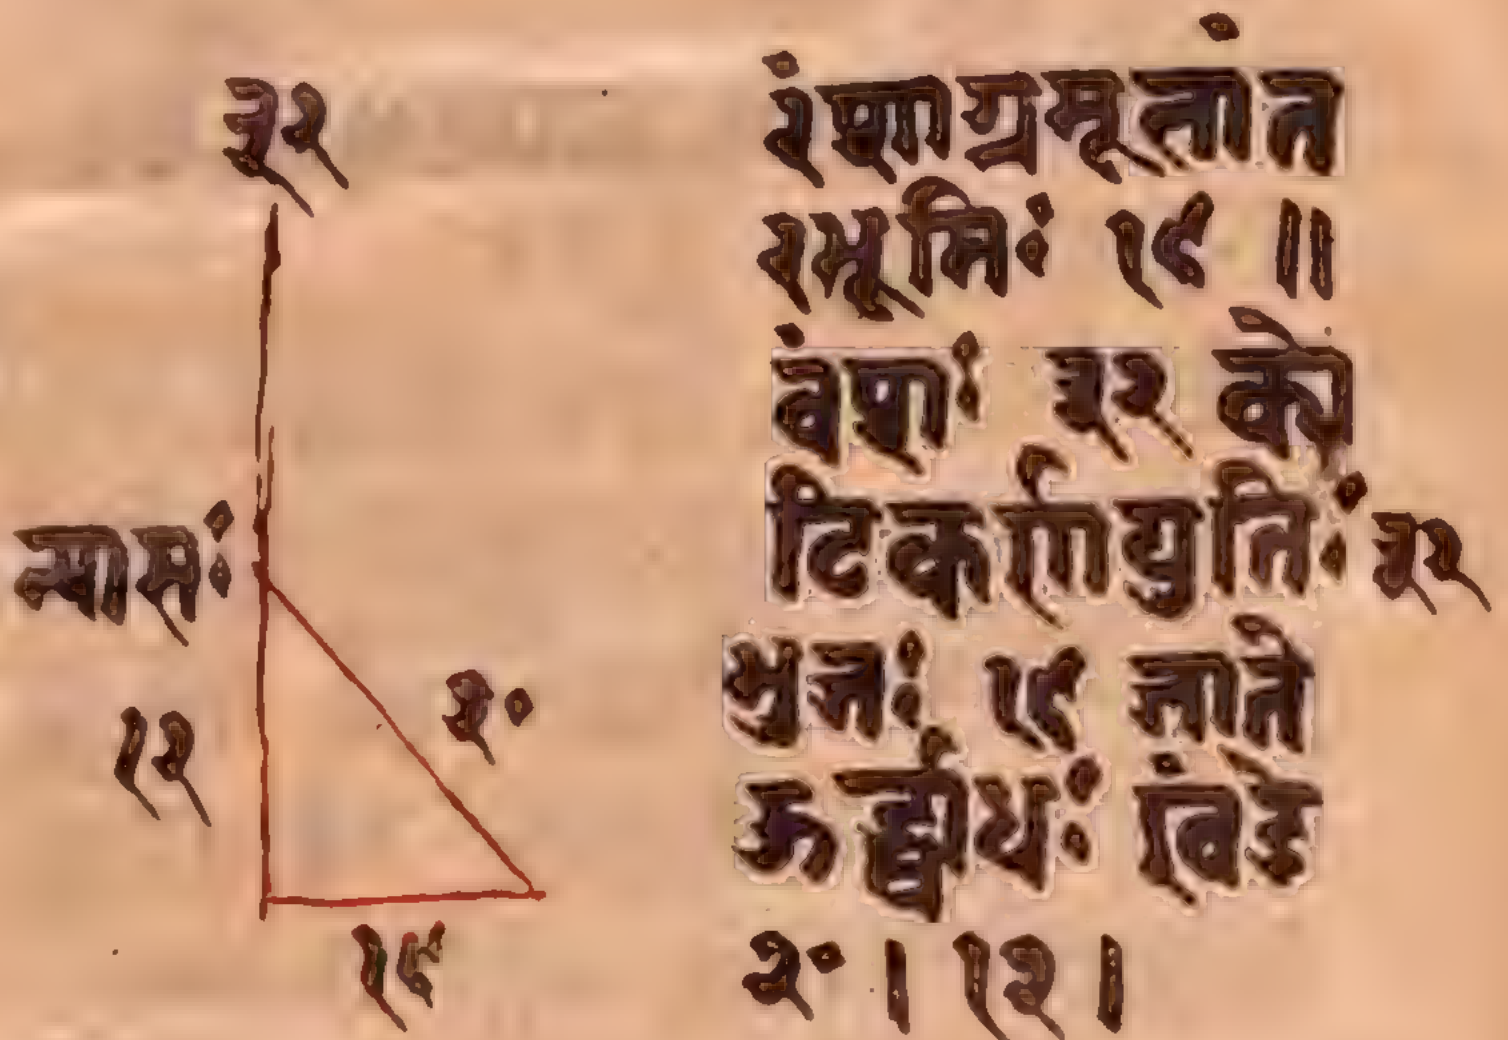 ३२
न्यासः
१२
२०
१६
वंशाग्रमूलांत
रभूमिः १६ ॥
वंशः ३२ को
टिकर्णयुतिः ३२
भुजः १६ जाते
ऊर्द्ध्वाधः खंडे
२०।१२।